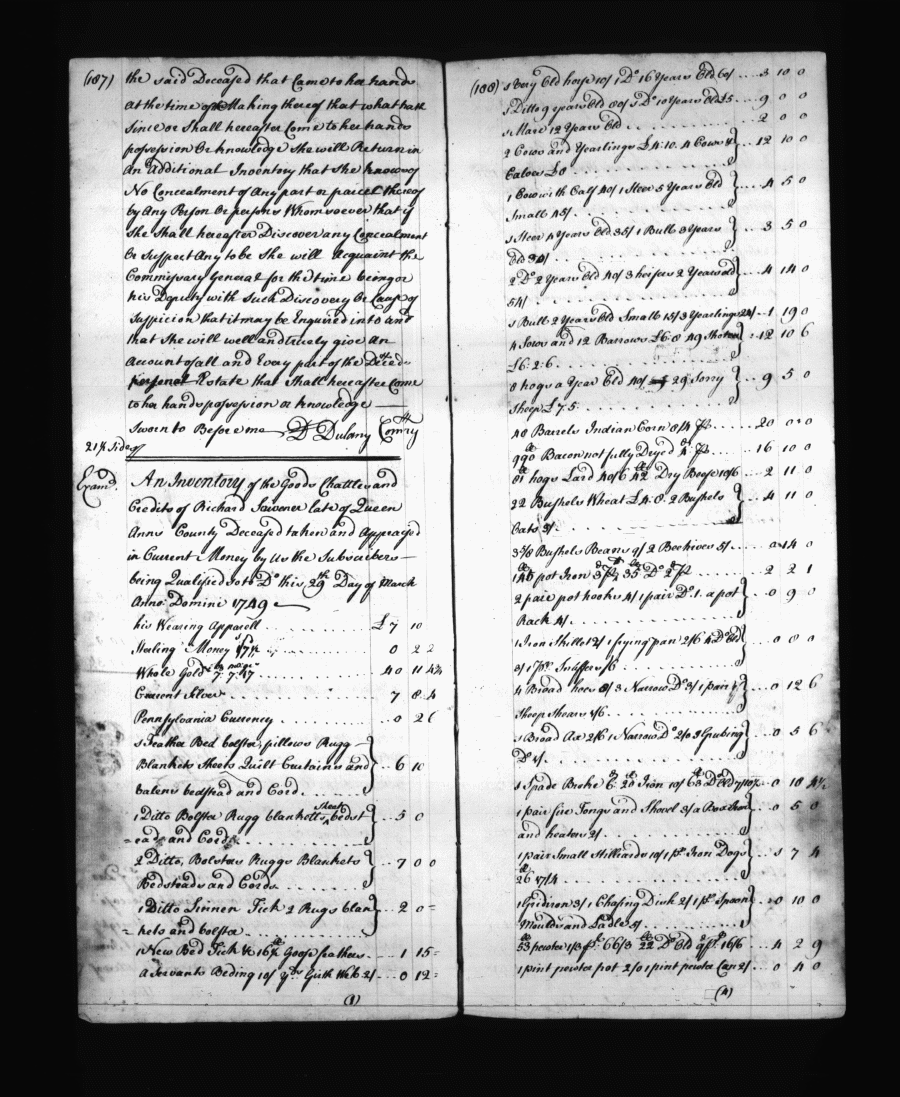 (187) the said Deceased that Came to her hands
at the time of Making thereof that what hath
Since or Shall hereafter Come to her hands
possession or knowledge She will Return in
An Additional Inventory that She knows of
No Concealment of Any part or parcel thereof
by Any Person or persons Whomsoever that if
She Shall hereafter Discover any Concealment
Or Suspect Any to be She will Acquaint the
Commissary General for the time being or
his Deputy with Such Discovery Or Cause of
Suspicion that it may be Enquired into and
that She will well and truely give An
Account of all and Every part of the Deced
personal Estate that Shall hereafter Come
to her hands possession or knowledge
Sworn to Before me D Dulany Comry
21st Sides
Examd. An Inventory of the Goods Chattles and
Credits of Richard late of Queen
Anns County Deceased taken and Appraised
in Current Money by Us the Subscribers
being Qualified so to Do this 29th Day of March
Anno: Domini 1749
his Wearing Apparell £ 7 10
Sterling Money 0 2 2
Whole Gold 40 11 4¾
Current Silver 7 8 4
Pennsylvania Currency 0 2 6
1 Feather Bed bolster, pillows Rugg
Blankets Sheets Quilt Curtains and 6 10
Valens bedstead and Cord
1 Ditto Bolster Rugg blanketts Sheet bedst 5 0
=ead and Cord
2 Ditto, Bolsters Ruggs Blankets 7 0 0
Bedsteads and Cords
1 Ditto Linnen Tick 2 Rugs blan 2 0 =
=kets and bolster
1 New Bed Tick & 16½ Goose feathers 1 15 =
A Servants Beding 10/ 2/ 0 12 =
(1)
(188) 1 Very Old horse 10/ 1 Do 16 Years Old 60/ 3 10 0
1 Ditto 9 years Old 80/ 1 Do 10 Years Old £5 9 0 0
1 Mare 12 Years Old 2 0 0
2 Cows and Yearlings £4:10. 4 Cows & 12 10 0
Calves £8
1 Cow with Calf 40/ 1 Steer 5 Years Old 4 5 0
Small 45/
1 Steer 4 Years Old 35/ 1 Bull 3 Years 3 5 0
Old 30/
2 Do 2 Years Old 40/ 3 heifers 2 Years old 4 14 0
54/
1 Bull 2 Years Old Small 15/ 3 Yearlings 24/ 1 19 0
4 Sows and 12 Barrows £6:8 49 Shoats 12 10 6
£6:2:6
8 hogs a Year Old 40/ 29 Sorry 9 5 0
Sheep £7:5
40 Barrels Indian Corn 20 0 0
990 Bacon not fully Dryed 4d 16 10 0
81 hogs Lard 40/6 42 Dry Beefe 10/6 2 11 0
22 Bushels Wheat £4:8. 2 Bushels 4 11 0
Oats 3/
3 Bushels Beans 9/ 2 Beehives 5/ 0 14 0
pot Iron 3d 35 Do 2 2 2 1
2 pair pot hooks 4/ 1 pair Do 1. a pot 0 9 0
Rack 4/
1 Iron Skillet 2/ 1 frying pan 2/6 Do Old 0 8 0
3/ 1 pr. Snuffers /6
4 Broad hoes 8/ 3 Narrow Do 3/ 1 pair 0 12 6
Sheep Shears 1/6
1 Broad Ax 2/6 1 Narrow Do 2/ 3 Grubing 0 5 6
Do 1/
1 Spade Broke 6 20 Iron 10/ 63 Do Old 0 18 4½
1 pair fire Tongs and Shovel 3/ a Box Iron 0 5 0
and heaters 2/
1 pair Small Stilliards 10/ 1 pr Iron Dogs 1 7 4
26 17/4
1 Gridiron 3/ 1 Chafing Dish 2/ 1 pr Spoon 0 10 0
Moulds and Ladle 5/
53 pewter 1/3 66/3 22 Do Old 9d 16/6 4 2 9
1 pint pewter pot 2/ 1 pint pewter Can 2/ 0 4 0
(4)